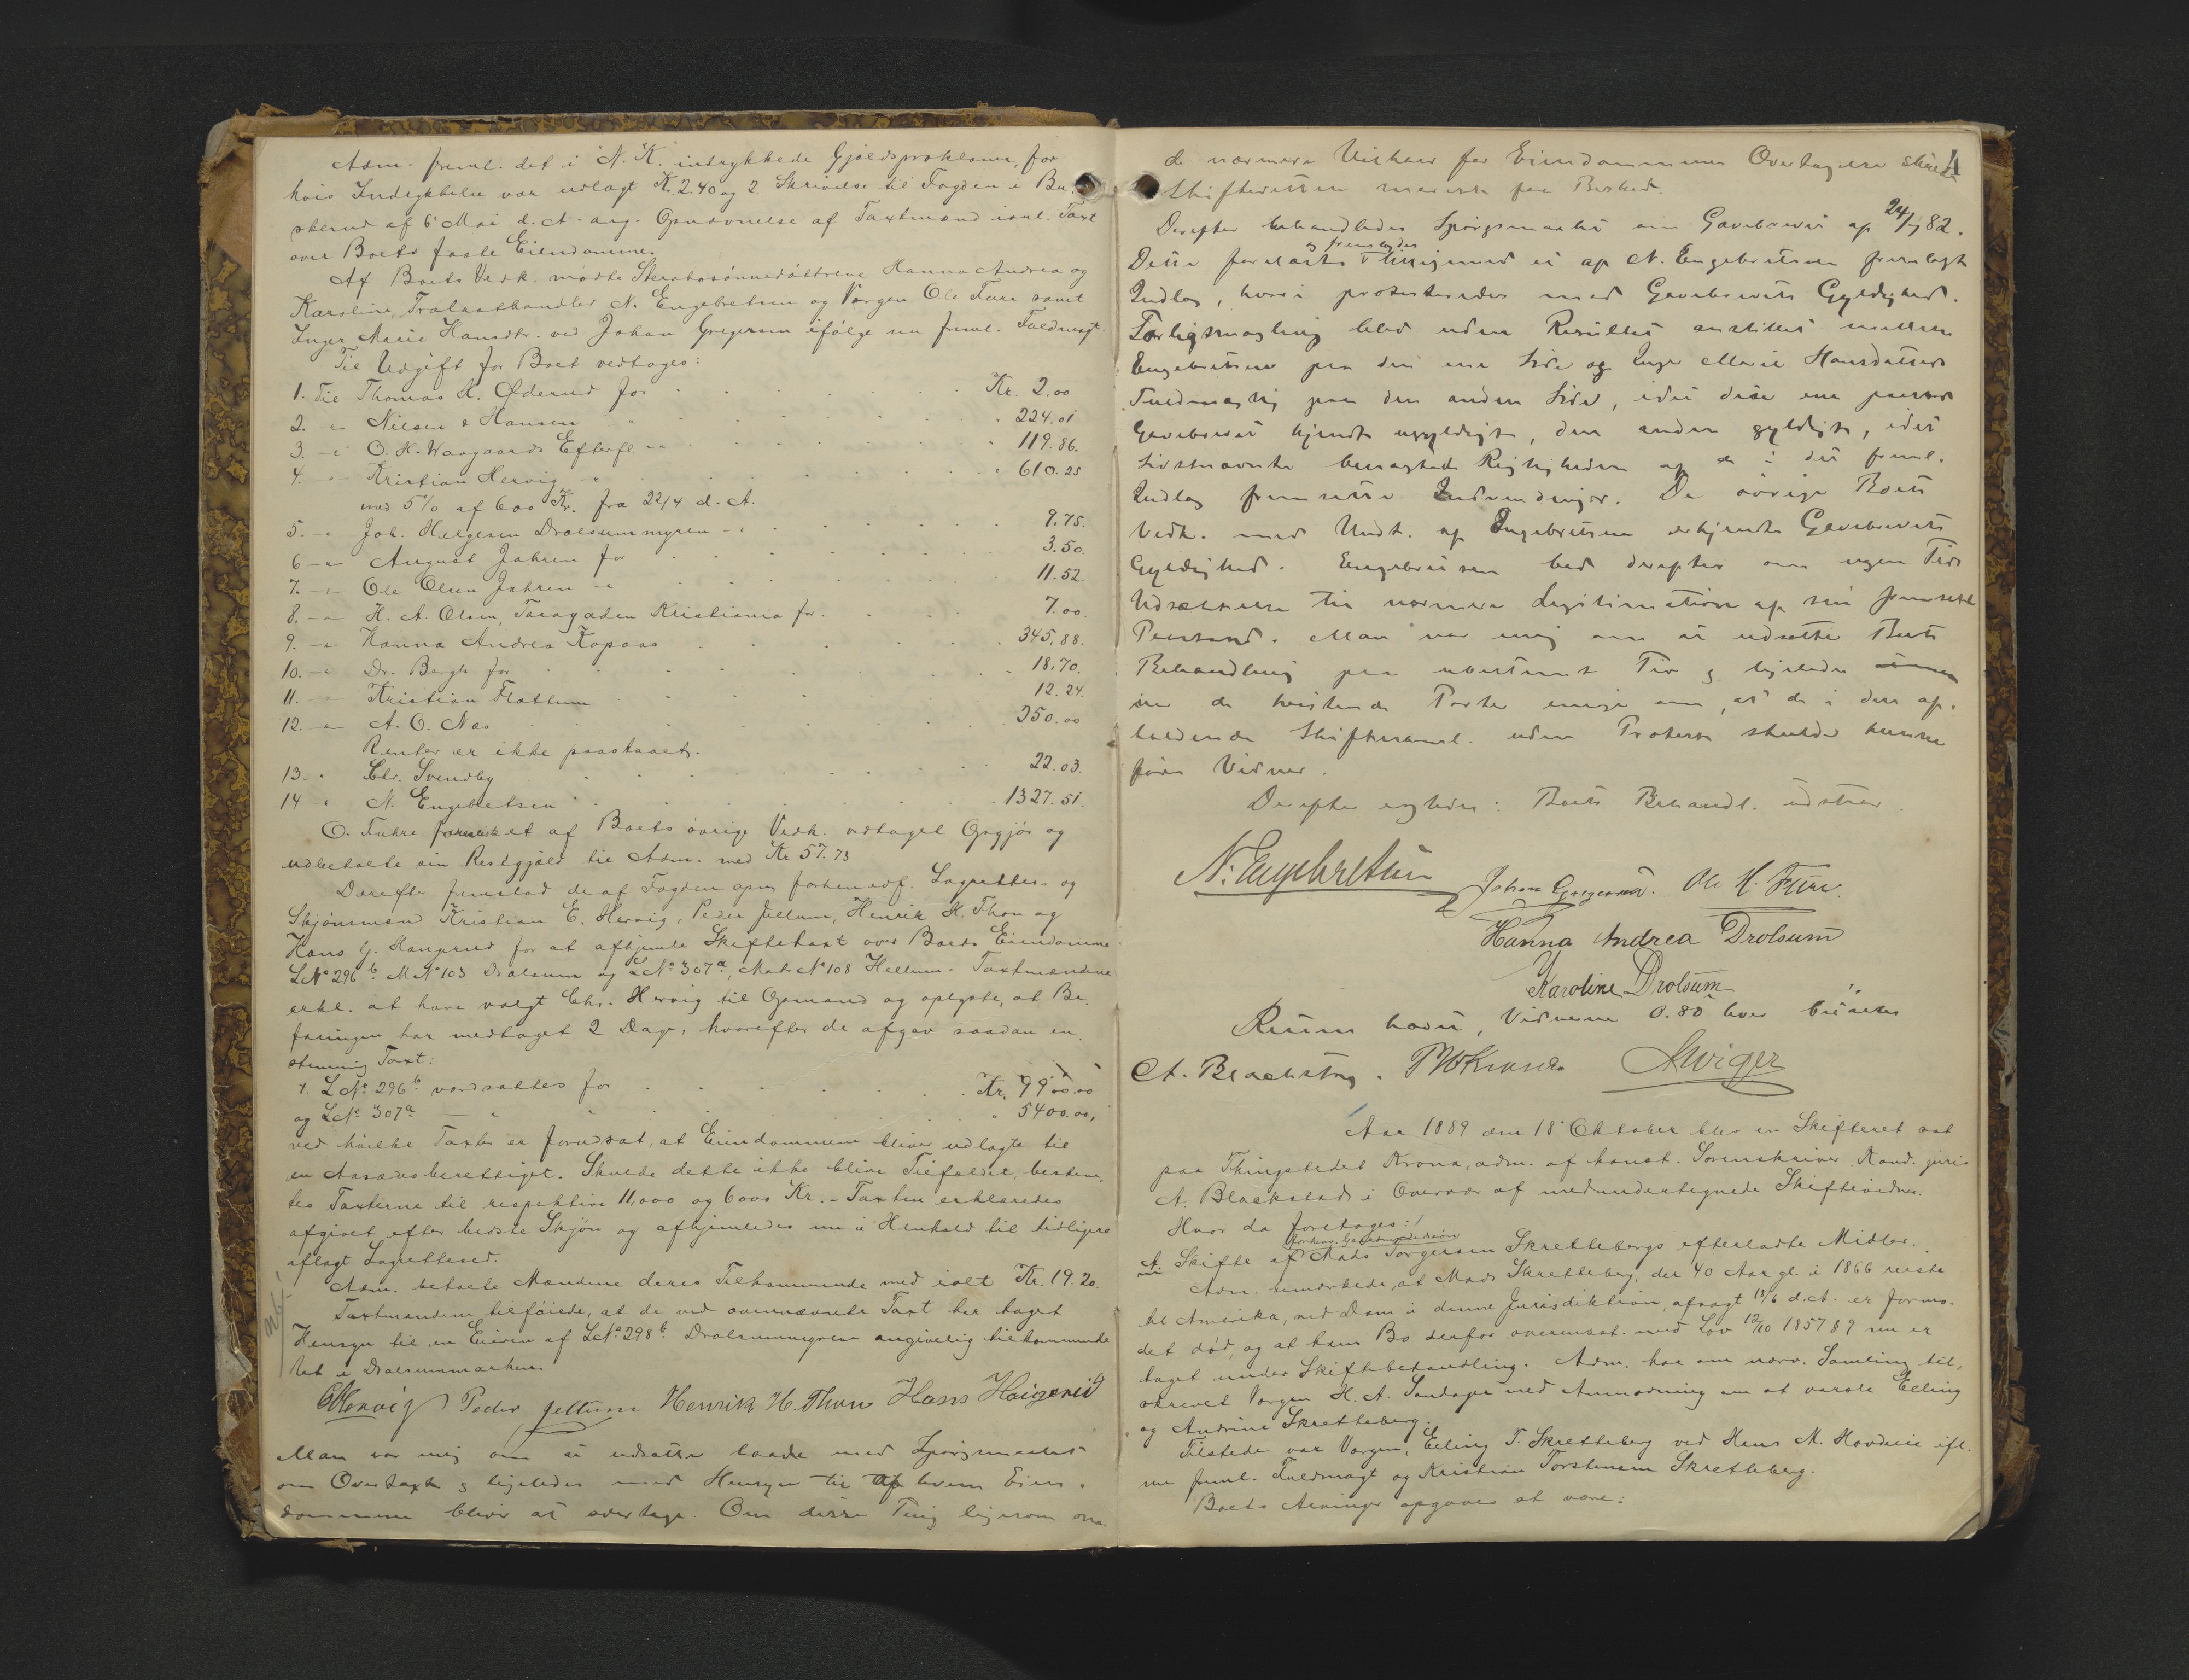 Adm. freml. det i "N. K." indrykkede Gjældsproklama, for
hvis Indrykkelse var udlagt K. 2.40 og 2. Skrivelse til Fogden i Bu-
skerud af 6 Mai d. A. ang. Opnævnelse af Taxtmænd isml. Taxt
over Boets faste Eiendomme.
Af Boets Vedk. mødte Sterbosønnedøttrene Hanna Andrea og
Karoline, Trælasthandler N. Engebretsen og Værgen Ole Fure samt
Inger Marie Hansdtr. ved Johan Gregersen ifølge nu freml. Fuldmagt.
Til Udgift for Boet vedtoges:
1. Til Thomas H. Øderud for Kr. 2.00
2. -"- Nilsen & Hansen " 224.01
3. -"- O. H. Waagaards Efterfl. -"- " 119.86.
4. -"- Kristian Hervig " " 610.25
med 5% af 600 Kr. fra 22/4 d. A.
5. -"- Joh. Helgesen Drolsummyren -"- 9.75.
6 -"- August Jahren for 3.50.
7. -"- Ole Olsen Jahren -"- 11.52
8. -"- H. A. Olsen, Kristiania for. 7.00
9. -"- Hanna Andrea Kopaas 345.88.
10. -"- Dr. Bergh for 18.70.
11. -"- Kristian Flattum 12.24.
12. -"- A. O. Næs 250.00
Renter er ikke paastaaet.
13. " Chr. Svendby 22.03.
14 " N. Engebretsen 1327.51.
O. Fuhre af Boets øvrige Vedk. vedtaget Opgjør og
udbetalte sin Restgjæld til Adm. med Kr 57.73
Derefter fremstod de af Fogden opn. forhen edf. Lagrettes- og
Skjønsmænd Kristian E. Hervig, Peder Jellum, Henrik H. Thon og
Hans G. Haugerud for at afhjemle Skiftetaxt over Boets Eiendomme
L№ 296 b. M№ 103 Drolsum og L№ 307 a, Mat. № 108 Hellum. Taxtmændene
erkl. at have valgt Chr. Hervig til Opmand og oplyste, at Be-
faringen har medtaget 2 Dage, hvorefter de afgav saadan en-
stemmig Taxt:
1. L№ 296 b værdsattes for Kr. 9900.00
og L№ 307 a — " " 5400.00,
ved hvilke Taxter er forudsat, at Eiendommene bliver udlagte til
en Aasædesberettiget. Skulde dette ikke blive Tilfældet, bestem-
tes Taxterne til respektive 11,000 og 6000 Kr. - Taxten erklæredes
afgivet efter bedste Skjøn og afhjemledes nu i Henhold til tidligere
aflagt Lagretteseed.
Adm. betalte Mændene deres Tilkommende med ialt Kr. 19.20.
Taxtmændene tilføiede, at de ved ovennævnte Taxt har taget
Hensyn til en Eieren af L№ 298 b. Drolsummyren angivelig tilkommende
Ret i Drolsummarken.
CHervig Peder Jellum Henrik H. Thon Hans Haugerud
Man var enig om at udsætte baade med Spørgsmaalet
om Overtaxt og ligeledes med Hensyn til af hvem Eien-
dommene bliver at overtage. Om disse Ting ligesom om
de nærmere Vilkaar for Eiendommenes Overtagelse skulde
Skifteretten meddeles Besked.
Derefter behandledes Spørgsmaalet om Gavebrevet af 24/1 82.
Dette forelagdes og fremlagdes tilligemed et af N. Engebretsen fremlagt
Indlæg, hvori protesteredes mod Gavebrevets Gyldighed.
Forligsmægling blev uden Resultat anstillet mellem
Engebretsen paa den ene Side og Inger Marie Hansdatters
Fuldmægtig paa den anden Side, idet den ene paastod
Gavebrevet kjendt ugyldigt, den anden gyldigt, idet
Sidstnævnte benægtede Rigtigheden af de i det freml.
Indlæg fremsatte Indvendinger. De øvrige Boets
Vedk. med Undt. af Engebretsen erkjendte Gavebrevets
Gyldighed. Engebretsen bad derefter om nogen Tids
Udsættelse til nærmere Legitimation af sin fremsatte
Paastand. Man var enig om at udsætte Boets
Behandling paa ubestemt Tid og ligeledes
var de tvistende Parter enige om, at de i den af-
holdende Skiftesaml. uden Protest skulde kunne
føre Vidner.
Derefter eragtedes: Boets Behandl. udstaar.
N. Engebretsen Johan Gregersen. Ole H. Fure.
Hanna Andrea Drolsum
Karoline Drolsum
Retten hævet, Vidnerne 0.80 hver betaltes
A. Blackstad.
Aar 1889 den 18 Oktober blev en Skifteret sat
paa Thingstedet Krona, adm. af konst. Sorenskriver, Kand. juris
A. Blackstad i Overvær af medundertegnede Skiftevidner.
Hvor da foretoges:
A. Skifte efter Mads Torgersen Skrettebergs efterladte Midler.
Adm. bemærkede, at Mads Skretteberg, der 40 Aar gl. i 1866 reiste
til Amerika, ved Dom i denne Jurisdiktion, afsagt 18/6 d. A. er formo-
det død, og at hans Bo derfor overensst. med Lov 12/10 1857 § 9 nu er
taget under Skiftebehandling. Adm. har om nærv. Samling til-
skrevet Værgen H. A. Sandager med Anmodning om at varsle Elling
og Andrine Skretteberg.
Tilstede var Værgen, Elling T. Skretteberg ved Hans M. Hovdeie ifl.
nu freml. Fuldmagt og Kristian Torstensen Skretteberg.
Boets Arvinger opgaves at være: